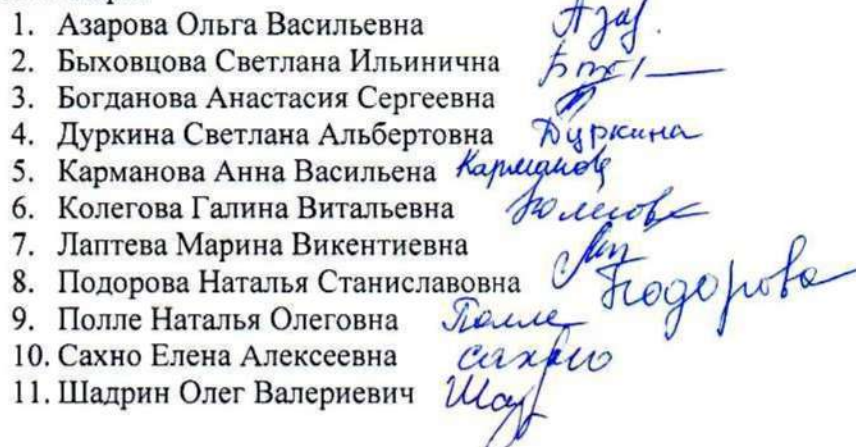 1. Азарова Ольга Васильевна Азар.
2. Быховцова Светлана Ильинична
3. Богданова Анастасия Сергеевна
4. Дуркина Светлана Альбертовна Дуркина
5. Карманова Анна Васильена Карманова
6. Колегова Галина Витальевна Колегова
7. Лаптева Марина Викентиевна
8. Подорова Наталья Станиславовна Подорова
9. Полле Наталья Олеговна Полле
10. Сахно Елена Алексеевна Сахно
11. Шадрин Олег Валериевич Шад